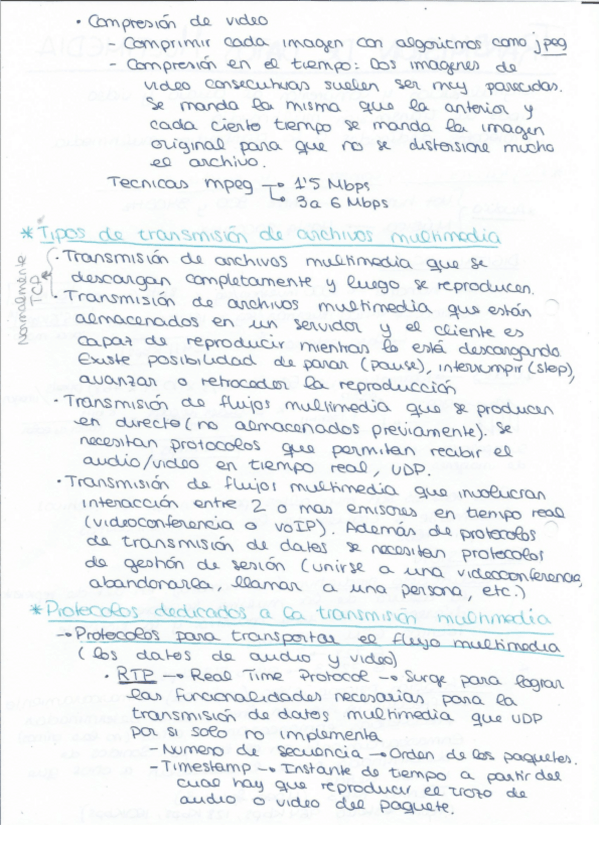 • Compresión de video
- Comprimir cada imagen con algoritmos como jpeg
- Compresión en el tiempo: Dos imagenes de
video consecutivas suelen ser muy parecidas.
Se manda la misma que la anterior y
cada cierto tiempo se manda la imagen
original para que no se distorsione mucho
el archivo.
Tecnicas mpeg → 1'5 Mbps
→ 3 a 6 Mbps
* Tipos de transmisión de archivos multimedia
Normalmente TCP
• Transmisión de archivos multimedia que se
descargan completamente y luego se reproducen.
• Transmisión de archivos multimedia que están
almacenados en un servidor y el cliente es
capaz de reproducir mientras lo está descargando.
Existe posibilidad de parar (pause), interrumpir (stop),
avanzar o retroceder la reproducción
• Transmisión de flujos multimedia que se producen
en directo (no almacenados previamente). Se
necesitan protocolos que permitan recibir el
audio/video en tiempo real, UDP.
• Transmisión de flujos multimedia que involucran
interacción entre 2 o mas emisores en tiempo real
(videoconferencia o VoIP). Además de protocolos
de transmisión de datos se necesitan protocolos
de gestión de sesión (unirse a una videoconferencia,
abandonarla, llamar a una persona, etc.)
* Protocolos dedicados a la transmisión multimedia
→ Protocolos para transportar el flujo multimedia
(los datos de audio y video)
• RTP → Real Time Protocol → Surge para lograr
las funcionalidades necesarias para la
transmisión de datos multimedia que UDP
por si solo no implementa
- Numero de secuencia → Orden de los paquetes.
- Timestamp → Instante de tiempo a partir del
cual hay que reproducir el trozo de
audio o video del paquete.